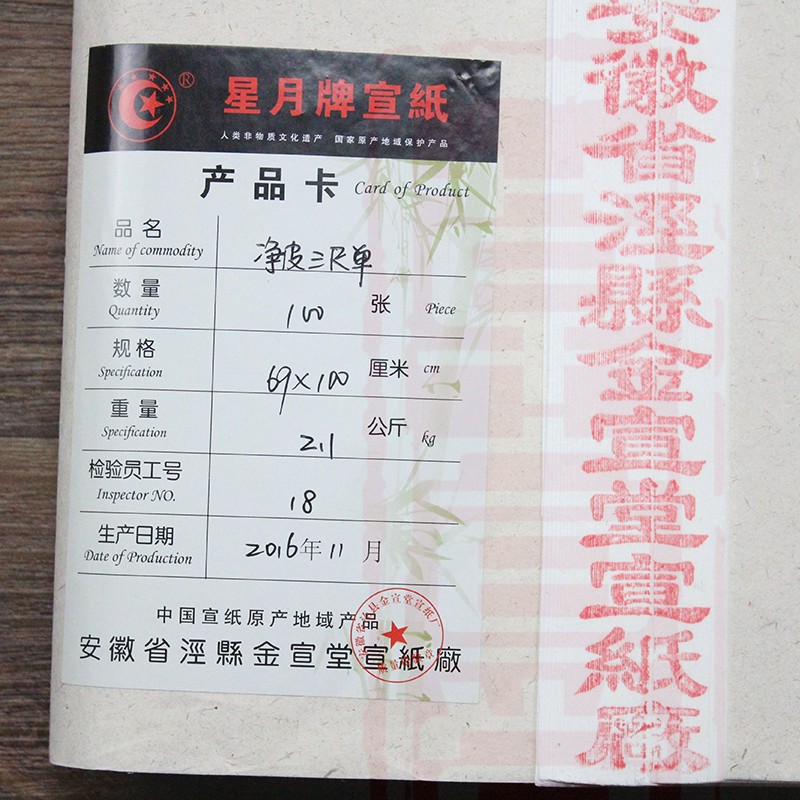 ®
星月牌宣紙
人类非物质文化遗产 国家原产地域保护产品
产品卡 Card of Product
品名 净皮三尺单
Name of commodity
数量 100 张 Piece
Quantity
规格 69×100 厘米 cm
Specification
重量 2.1 公斤 kg
Specification
检验员工号 18
Inspector NO.
生产日期 2016年11月
Date of Production
中国宣纸原产地域产品
安徽省涇縣金宣堂宣紙廠
安徽省涇縣金宣堂宣紙廠